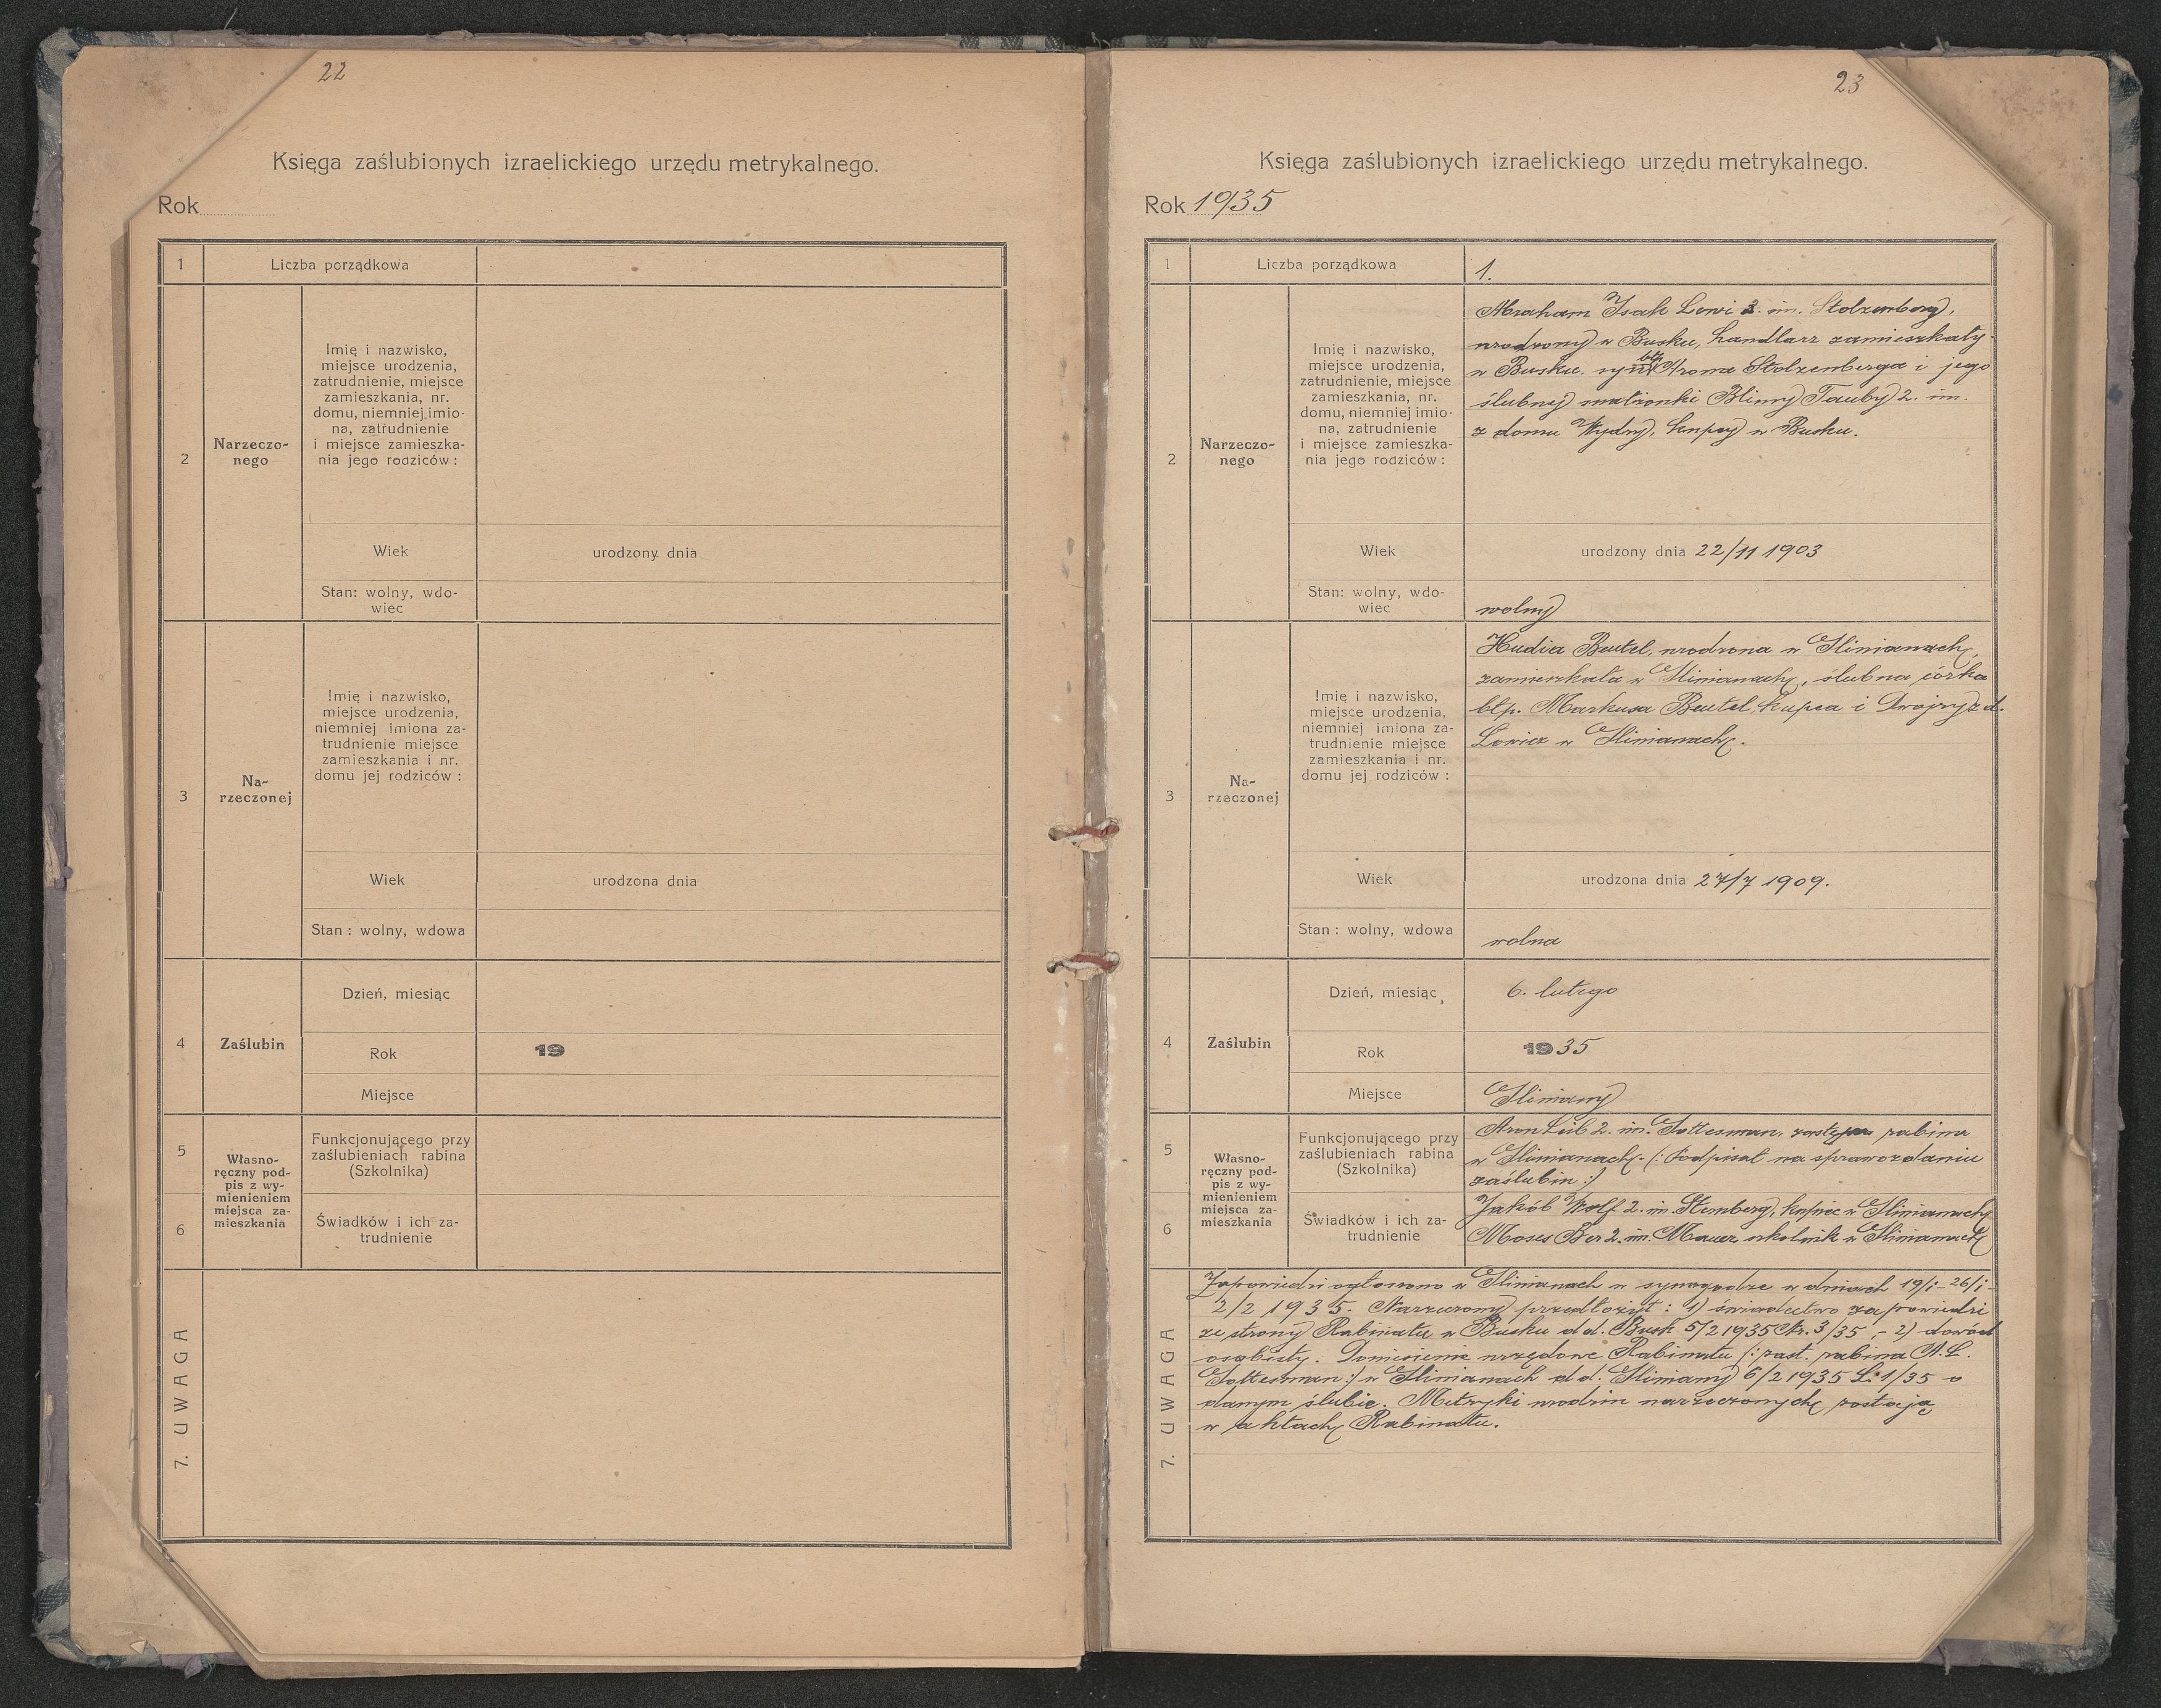 22
Księga zaślubionych izraelickiego urzędu metrykalnego.
Rok
1
Liczba porządkowa
2
Narzeczo-
nego
Imię i nazwisko,
miejsce urodzenia,
zatrudnienie, miejsce
zamieszkania, nr.
domu, niemniej imio-
na, zatrudnienie
i miejsce zamieszka-
nia jego rodziców :
Wiek
urodzony dnia
Stan: wolny, wdo-
wiec
3
Na-
rzeczonej
Imię i nazwisko,
miejsce urodzenia,
niemniej imiona za-
trudnienie miejsce
zamieszkania i nr.
domu jej rodziców :
Wiek
urodzona dnia
Stan : wolny, wdowa
4
Zaślubin
Dzień, miesiąc
Rok
19
Miejsce
5
6
Własno-
ręczny pod-
pis z wy-
mienieniem
miejsca za-
mieszkania
Funkcjonującego przy
zaślubieniach rabina
(Szkolnika)
Świadków i ich za-
trudnienie
7. UWAGA
23
Księga zaślubionych izraelickiego urzędu metrykalnego.
Rok 1935
1
Liczba porządkowa
1.
2
Narzeczo-
nego
Imię i nazwisko,
miejsce urodzenia,
zatrudnienie, miejsce
zamieszkania, nr.
domu, niemniej imio-
na, zatrudnienie
i miejsce zamieszka-
nia jego rodziców :
Abraham Isak Lewi 3. im. Stolzenberg,
urodzony w Busku, handlarz zamieszkały
w Busku. syn błp. Arona Stolzenberga i jego
ślubnej małżonki Blimy Tauby 2. im.
z domu Wydry, kupcy w Busku.
Wiek
urodzony dnia 22/11 1903
Stan: wolny, wdo-
wiec
wolny
3
Na-
rzeczonej
Imię i nazwisko,
miejsce urodzenia,
niemniej imiona za-
trudnienie miejsce
zamieszkania i nr.
domu jej rodziców :
Hudia Beutel, urodzona w Glinianach,
zamieszkała w Glinianach, ślubna córka
błp. Markusa Beutel, kupca i Dwojry z d.
Lowicz w Glinianach.
Wiek
urodzona dnia 27/7 1909.
Stan : wolny, wdowa
wolna
4
Zaślubin
Dzień, miesiąc
6. lutego
Rok
1935
Miejsce
Gliniany
5
6
Własno-
ręczny pod-
pis z wy-
mienieniem
miejsca za-
mieszkania
Funkcjonującego przy
zaślubieniach rabina
(Szkolnika)
Aron Leib 2. im. Gottesman, zastępca rabina
w Glinianach. (: Podpisał na sprawozdaniu
zaślubin :)
Świadków i ich za-
trudnienie
Jakób Wolf 2. im. Sternberg, kupiec w Glinianach
Moses Ber 2. im. Mauer, szkolnik w Glinianach
7. UWAGA
Zapowiedzi ogłoszono w Glinianach w synagodze w dniach 19/I - 26/I -
2/2 1935. Narzeczony przedłożył : 1) świadectwo zapowiedzi
ze strony Rabinatu w Busku dd. Busk 5/2 1935 Nr. 3/35, - 2) dowód
osobisty. Doniesienie urzędowe Rabinatu (: zast. rabina A. L.
Gottesman :) w Glinianach dd. Gliniany 6/2 1935 L. 1/35 o
danym ślubie. Metryki urodzin narzeczonych zostają
w aktach Rabinatu.